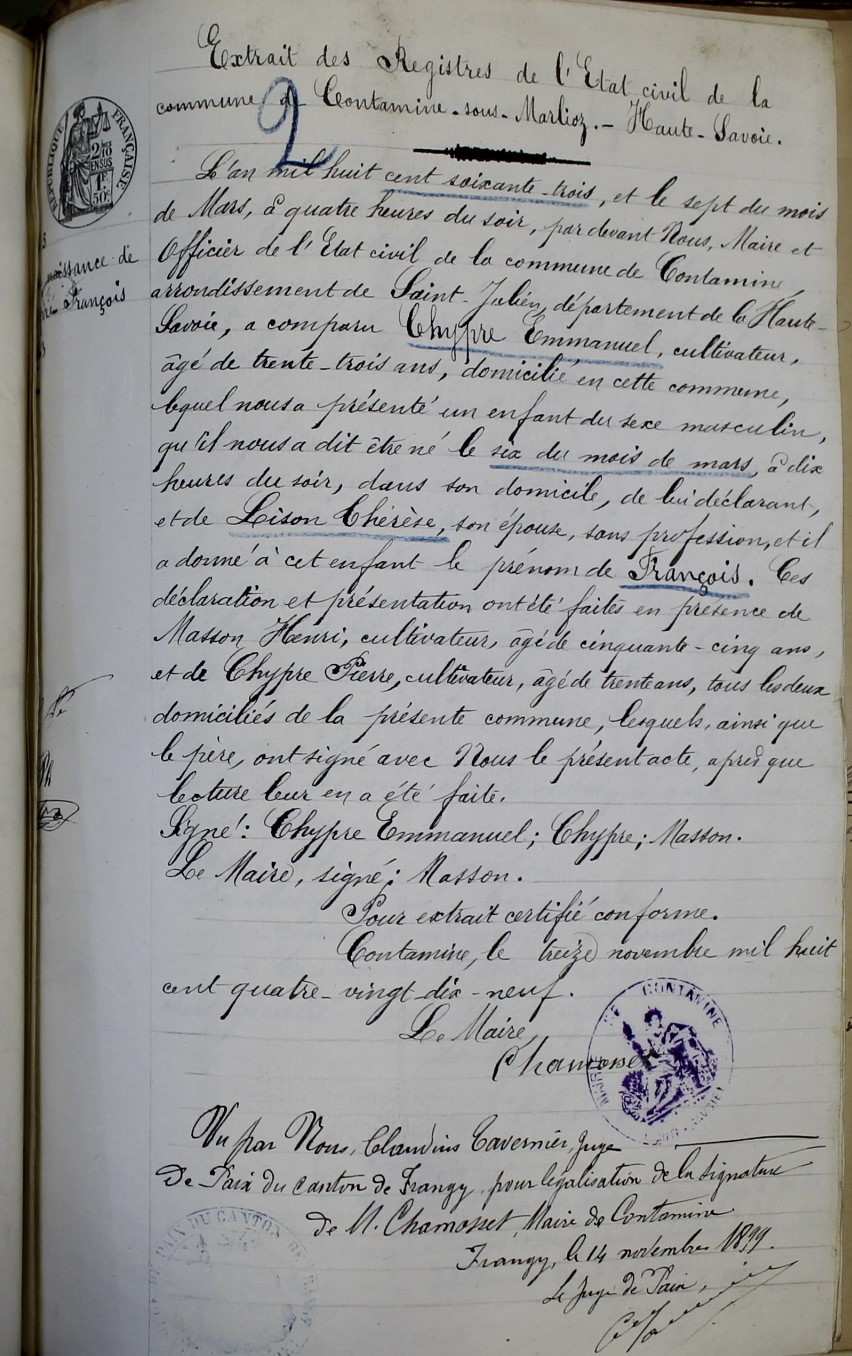 Extrait des Registres de l'Etat civil de la
commune de Contamine-sous-Marlioz.- Haute-Savoie.
2
RÉPUBLIQUE FRANÇAISE
2/10
EN SUS
1F
50c
L'an mil huit cent soixante-trois, et le sept du mois
de Mars, à quatre heures du soir, par devant Nous, Maire et
Officier de l'Etat civil de la commune de Contamine,
arrondissement de Saint-Julien, département de la Haute-
Savoie, a comparu Chypre Emmanuel, cultivateur,
âgé de trente-trois ans, domicilié en cette commune,
lequel nous a présenté un enfant du sexe masculin,
qu'il nous a dit être né le six du mois de mars, à dix
heures du soir, dans son domicile, de lui déclarant,
et de Lison Thérèse, son épouse, sans profession, et il
a donné à cet enfant le prénom de François. Ces
déclaration et présentation ont été faites en présence de
Masson Henri, cultivateur, âgé de cinquante-cinq ans,
et de Chypre Pierre, cultivateur, âgé de trente ans, tous les deux
domiciliés de la présente commune, lesquels, ainsi que
le père, ont signé avec Nous le présent acte, après que
lecture leur en a été faite.
Signé: Chypre Emmanuel; Chypre; Masson.
Le Maire, signé: Masson.
Pour extrait certifié conforme.
Contamine, le treize novembre mil huit
cent quatre-vingt-dix-neuf.
Le Maire,
Chamosset
MAIRIE DE CONTAMINE
Vu par Nous, Claudius Tavernier, Juge
De Paix du canton de Frangy, pour légalisation de la signature
de M. Chamosset, Maire de Contamine
Frangy, le 14 novembre 1899.
Le Juge de Paix,
PAIX DU CANTON DE
naissance de
François